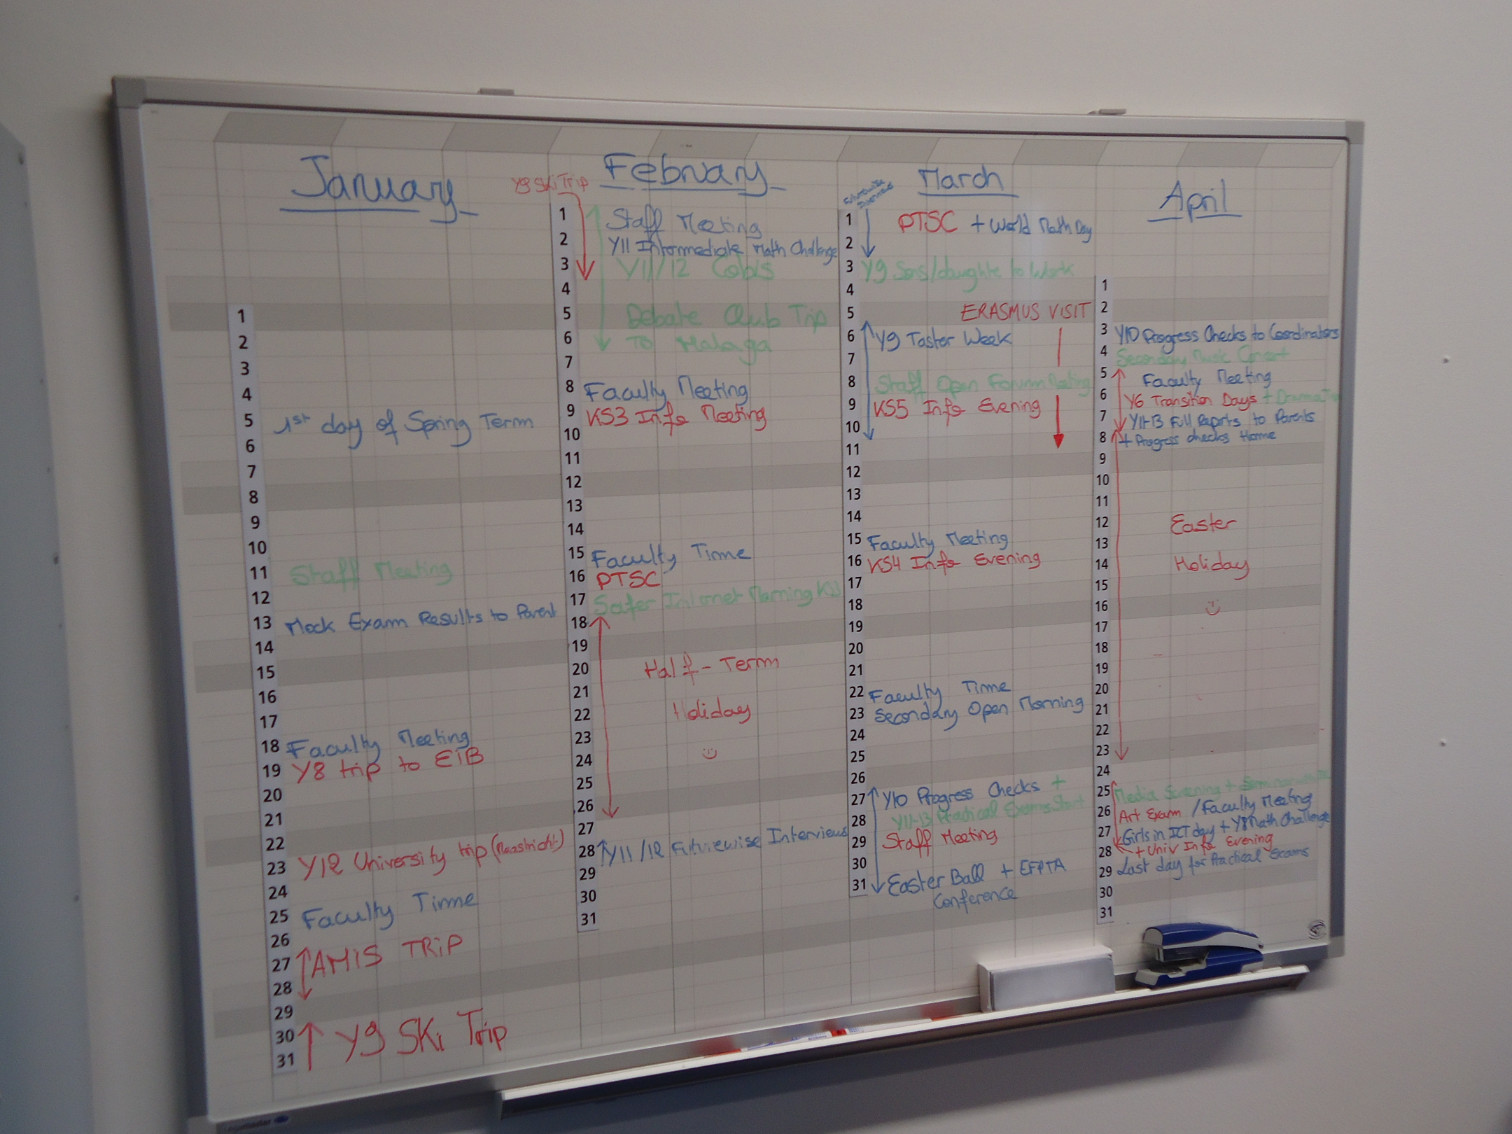 January
1
2
3
4
5 1st day of Spring Term
6
7
8
9
10
11 Staff Meeting
12
13 Mock Exam Results to Parent
14
15
16
17
18 Faculty Meeting
19 Y8 trip to EIB
20
21
22
23 Y12 University trip (Maastricht)
24
25 Faculty Time
26
27 AMIS TRiP
28
29
30 Y9 SKi Trip
31
February
Y9 Ski Trip
1 Staff Meeting
2 Y11 Intermediate Math Challenge
3 Y11/12
4
5 Debate Club Trip
6 To Malaga
7
8 Faculty Meeting
9 KS3 Info Meeting
10
11
12
13
14
15 Faculty Time
16 PTSC
17 Safer Internet Morning
18
19
20 Half-Term
21
22 Holiday
23
24
25
26
27
28 Y11/12 Futurewise Interviews
29
30
31
March
1 PTSC + World Math Day
2
3 Y9 Sons/daughts to Work
4
5 ERASMUS VISIT
6 Y9 Taster Week
7
8 Staff Open Forum Meeting
9 KS5 Info Evening
10
11
12
13
14
15 Faculty Meeting
16 KS4 Info Evening
17
18
19
20
21
22 Faculty Time
23 Secondary Open Morning
24
25
26
27 Y10 Progress Checks +
28 Y11-13 Practical Exams Start
29 Staff Meeting
30
31 Easter Ball + EFPTA
Conference
April
1
2
3 Y10 Progress Checks to Coordinators
4 Secondary Music Concert
5 Faculty Meeting
6 Y6 Transition Days + Drama
7 Y11-13 Full Reports to Parents
8 + Progress checks Home
9
10
11
12 Easter
13
14 Holiday
15
16
17
18
19
20
21
22
23
24
25 Media Evening +
26 Art Exam / Faculty Meeting
27 Girls in ICT day + Y8 Math Challenge
28 + Univ Info Evening
29 Last day for Practical Exams
30
31